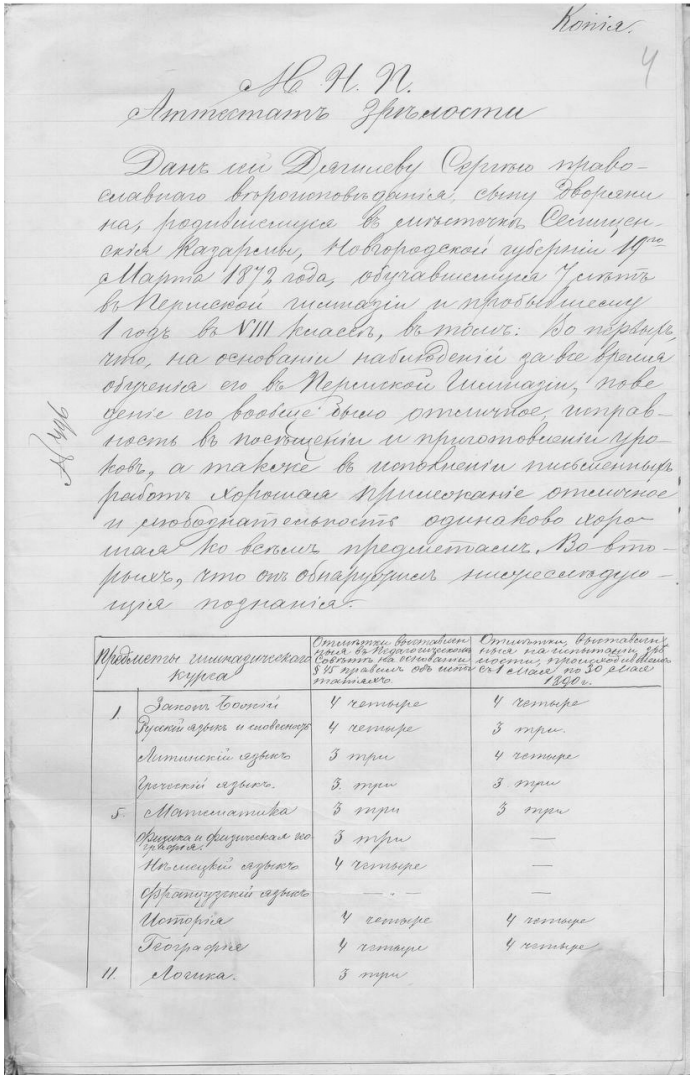 Копія.
4
М. Н. П.
Аттестатъ Зрѣлости
Данъ сей Дягилеву Сергѣю право-
славнаго вѣроисповѣданія, сыну Дворяни
на, родившемуся въ мѣстечкѣ Селищен-
скія Казармы, Новгородской губерніи 19го
Марта 1872 года, обучавшемуся 7 лѣтъ
въ Пермской гимназіи и пробывшему
1 годъ въ VIII классѣ, въ томъ: Во первыхъ,
что, на основаніи наблюденій за все время
обученія его въ Пермской Гимназіи, пове
деніе его вообще было отличное, исправ-
ность въ посѣщеніи и приготовленіи уро-
ковъ, а также въ исполненіи письменныхъ
работъ хорошая прилежаніе отличное
и любознательность одинаково хоро-
шая ко всѣмъ предметамъ. Во вто-
рыхъ, что онъ обнаружилъ нижеслѣдую-
щія познанія:
№ 496
Предметы гимназическаго
курса
Отмѣтки выставлен
ныя въ Педагогическомъ
Совѣтѣ на основаніи
§ 75 правилъ объ испы
таніяхъ.
Отмѣтки, выставлен
ныя на испытаніи зрѣ
лости, происходившемъ
съ 1 Мая по 30 Мая
1890 г.
1. Законъ Божій 4 четыре 4 четыре
Русскій языкъ и словесность 4 четыре 3 три.
Латинскій языкъ 3 три 4 четыре
Греческій языкъ. 3 три 3 три
5. Математика 3 три 3 три
Физика и физическая гео
графія. 3 три —
Нѣмецкій языкъ 4 четыре —
Французскій языкъ — . — —
Исторія 4 четыре 4 четыре
Географія 4 четыре 4 четыре
11. Логика. 3 три